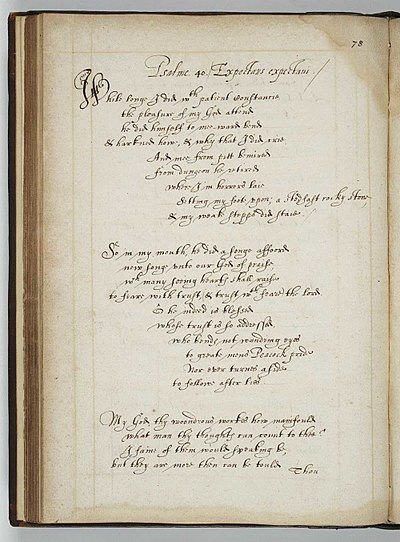 78
Psalme. 40. Expectans expectaui.
While longe I did, wth patient Constancie
the pleasure of my God attend
he did himself to mee-ward bend
& harkned how, & why that I did crie
And mee from pitt bemired
from dungeon he retired
where I in horrors laie
Setting my foot, vpon; a stedfast rocky stone
& my weak stepps did staie.
So in my mouth, he did a songe affoord
new song vnto our God of praise
wch many seeing hearts shall raise
to feare with trust, & trust wth feare the lord
O he indeed is blessed
whose trust is so addressed
who bends not wandring eyes
to greate mens Peacock pride
Nor ever turnes aside
to followe after lies
My God, thy woondrous workes how manifould
what man thy thoughts can count to thee?
I faine of them would speaking be,
but they are more then can be tould
Thou